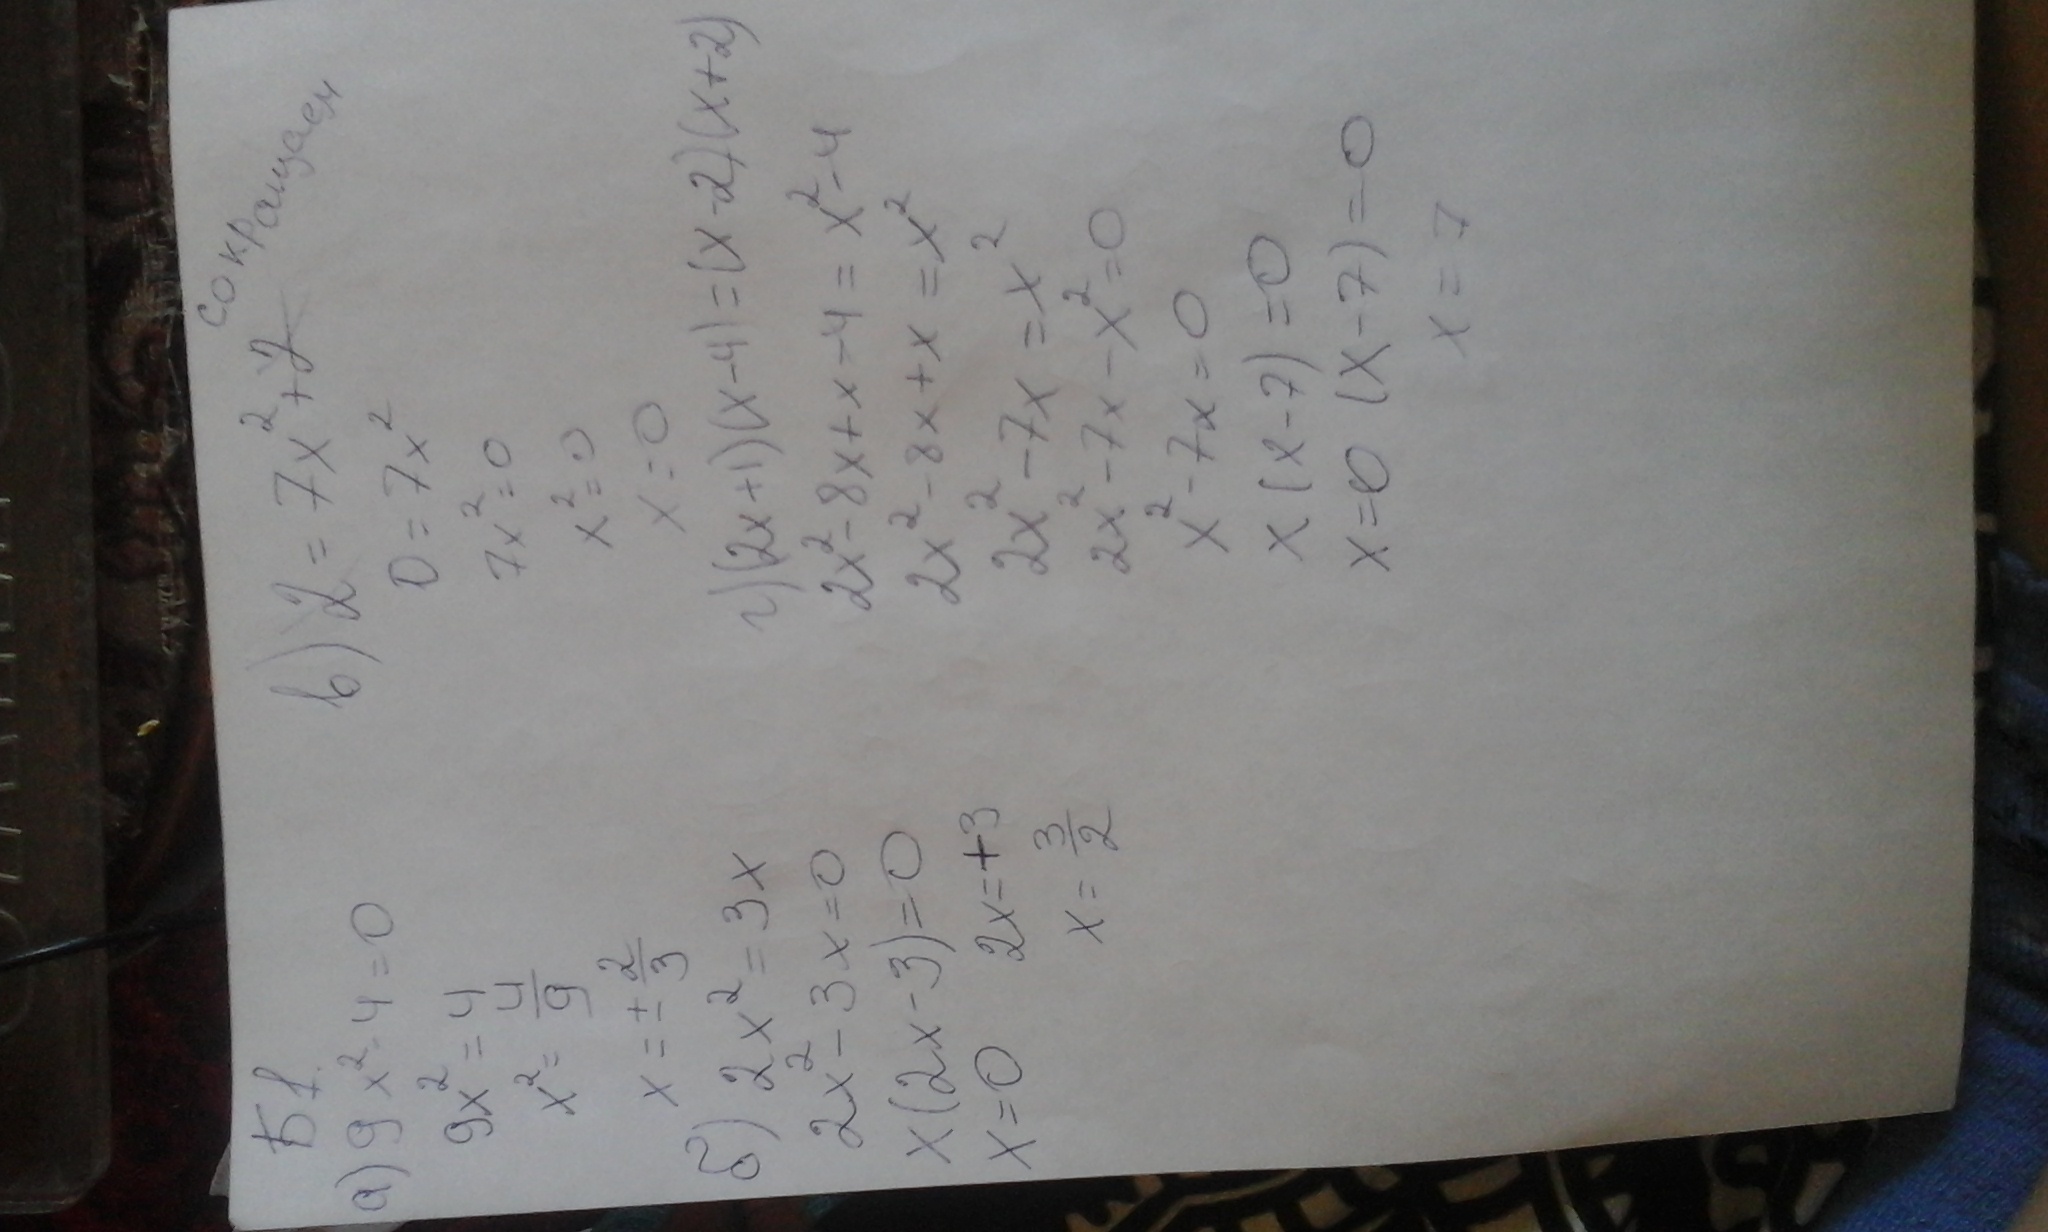 Б1.
а) 9x² - 4 = 0
9x² = 4
x² = 4/9
x = ± 2/3
б) 2x² = 3x
2x² - 3x = 0
x(2x - 3) = 0
x = 0 2x = +3
x = 3/2
в) 2 = 7x² + 2 сокращаем
0 = 7x²
7x² = 0
x² = 0
x = 0
г) (2x + 1)(x - 4) = (x - 2)(x + 2)
2x² - 8x + x - 4 = x² - 4
2x² - 8x + x = x²
2x² - 7x = x²
2x² - 7x - x² = 0
x² - 7x = 0
x(x - 7) = 0
x = 0 (x - 7) = 0
x = 7